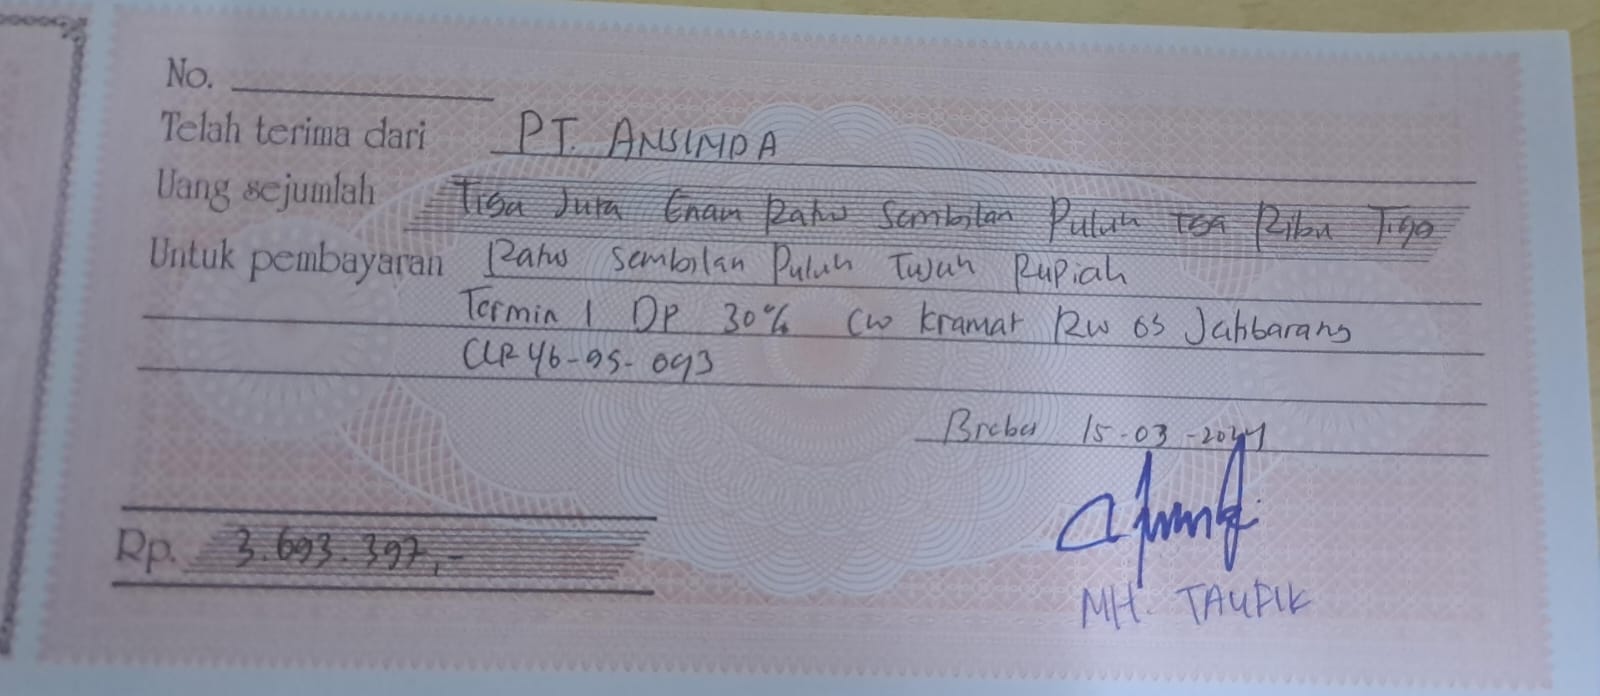 No.
Telah terima dari PT. ANSINDA
Uang sejumlah Tiga Juta Enam Ratus Sembilan Puluh Tiga Ribu Tiga
Untuk pembayaran Ratus Sembilan Puluh Tujuh Rupiah
Termin 1 DP 30% CW Kramat RW 05 Jatibarang
CLR 46-95-093
Brebes 15-03-2024
Rp. 3.693.397,-
MH. TAUFIK